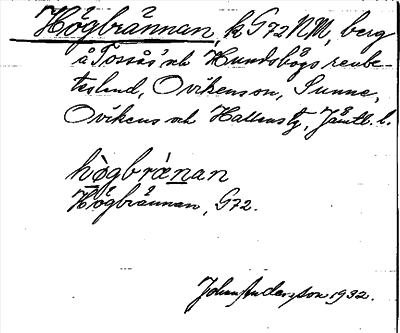 Högbrännan, k G72NM, berg
å Tossås' och Hundshögs renbe-
tesland, Ovikens sn, Sunne,
Ovikens och Hallens tg, Jämtl. l.
hògbrǽnan
Högbrännan, G72.
John Anderzon 1932.